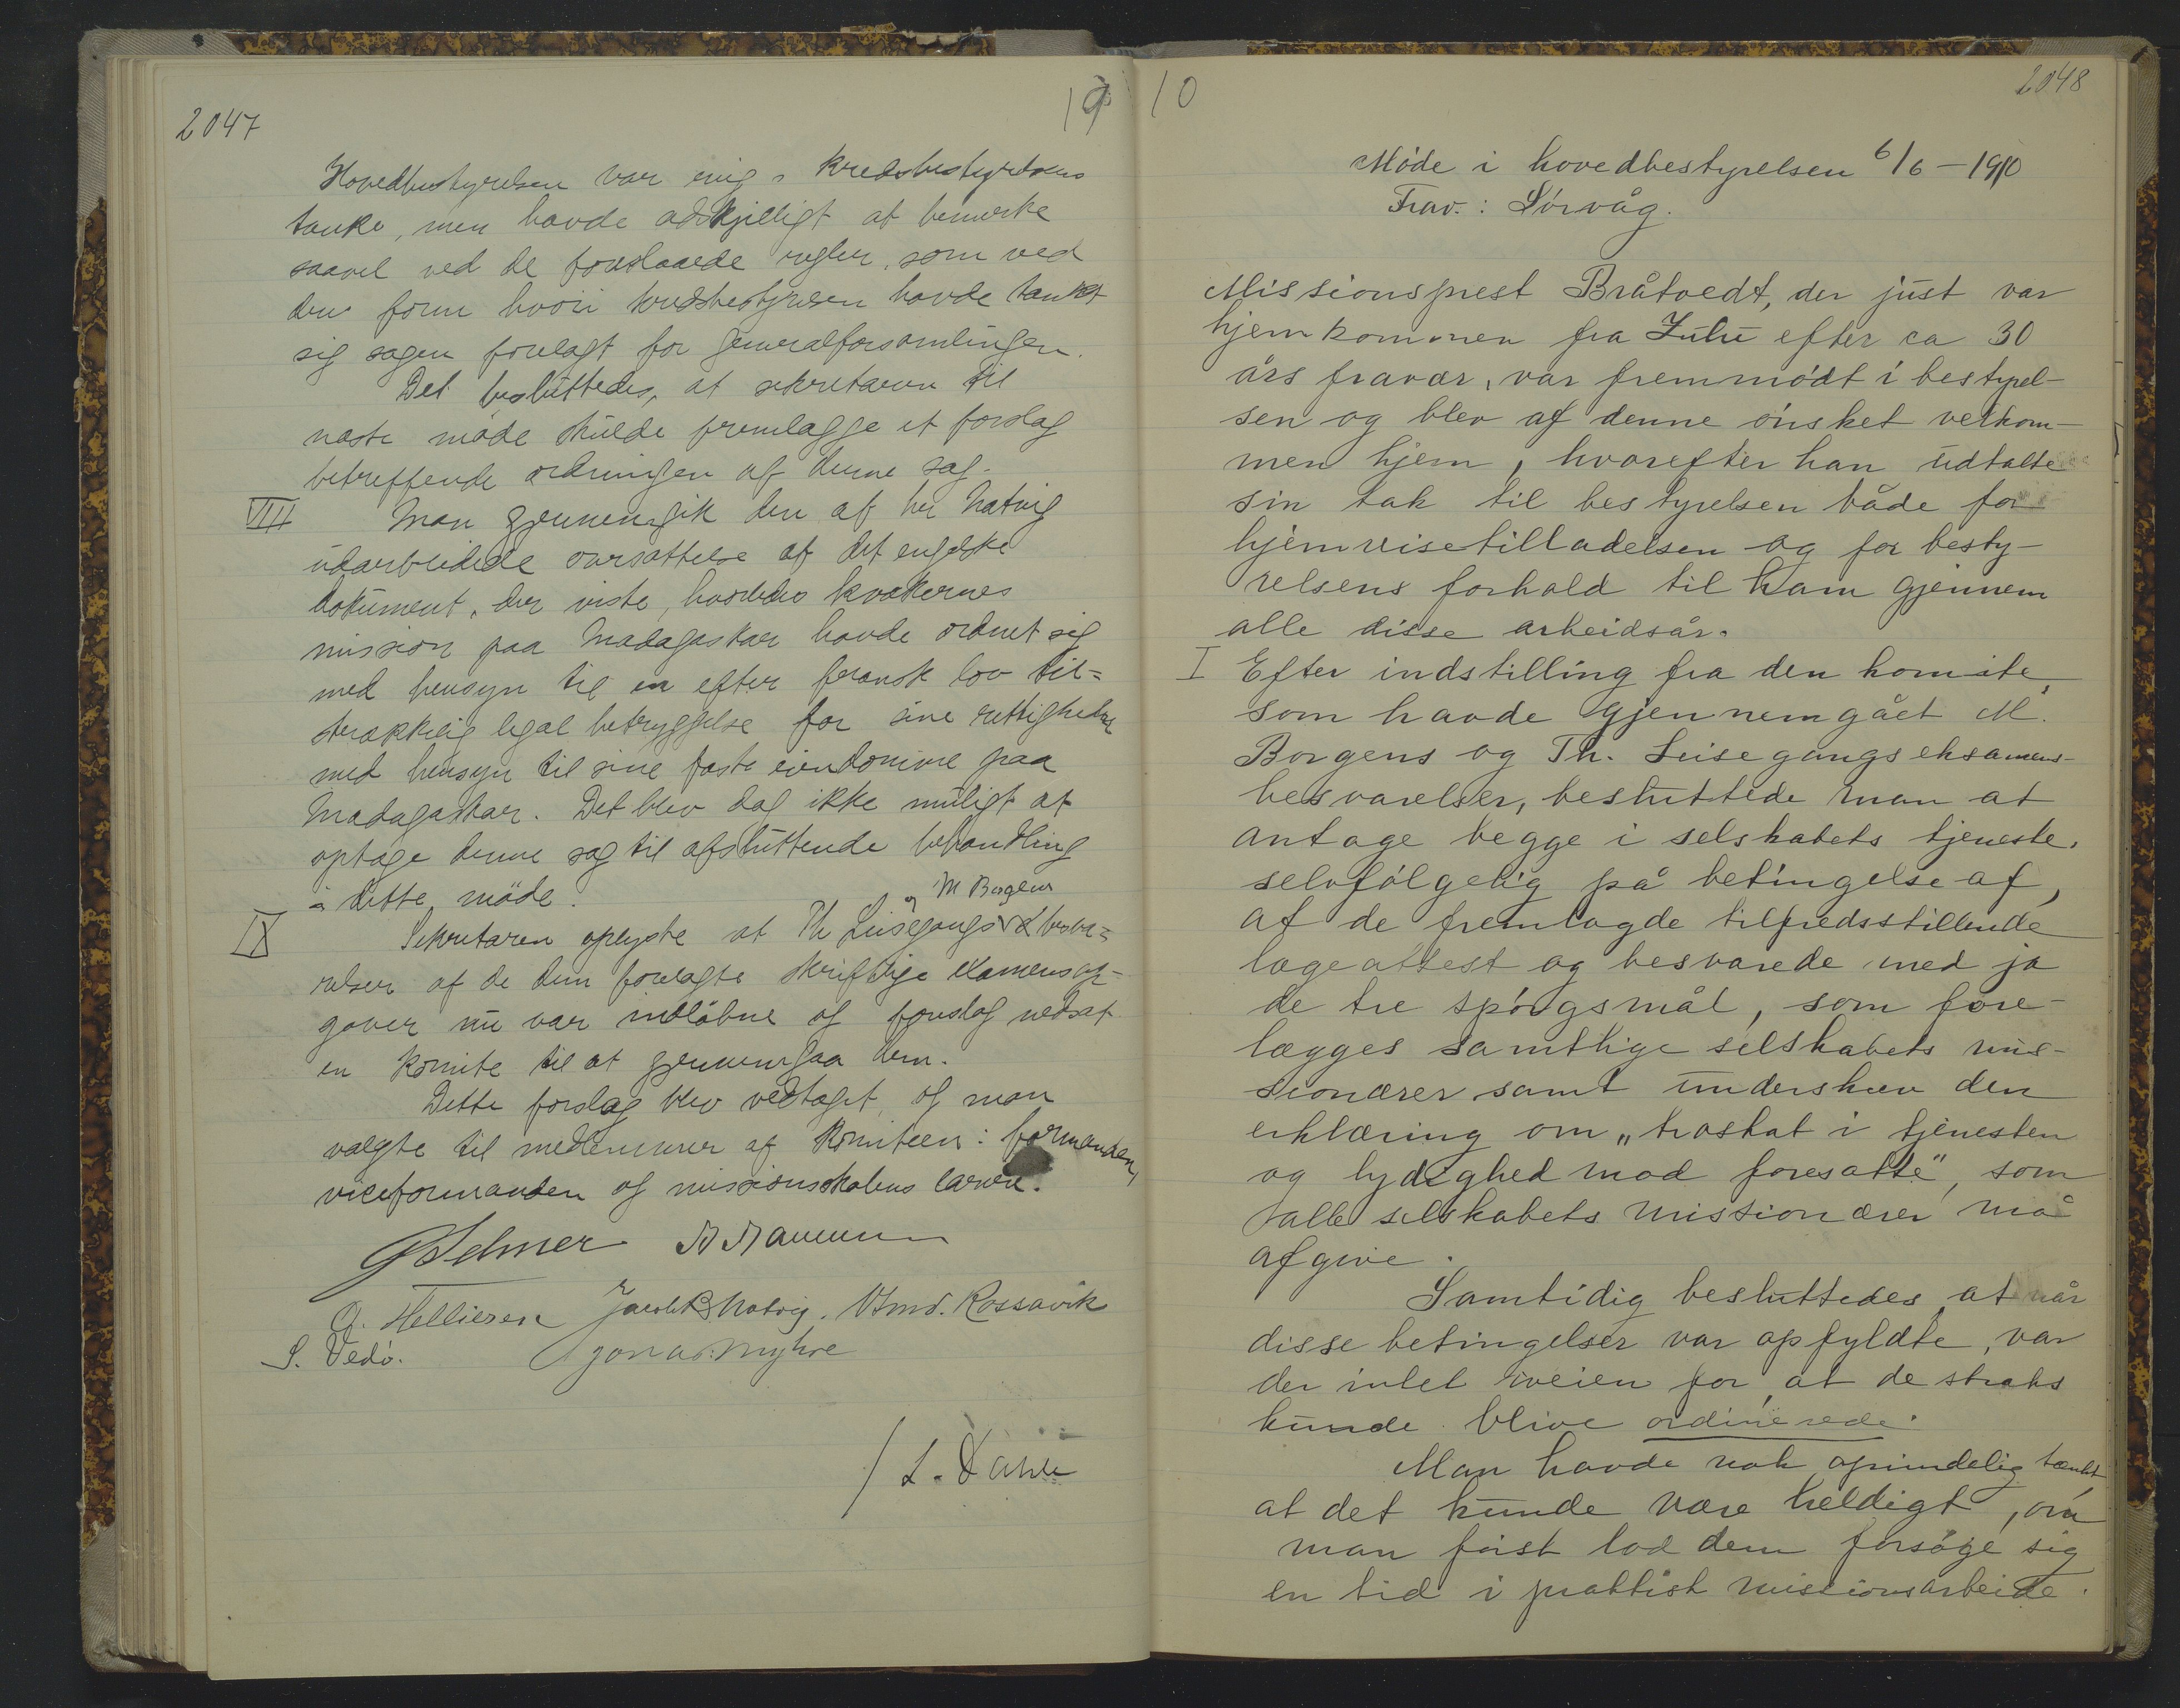 2047
19
Hovedbestyrelsen var enig i kredsbestyrelsens
tanke, men havde adskjilligt at bemerke
saavel ved de foreslaaede regler, som ved
den form hvori kredsbestyrelsen havde tænkt
sig sagen forelagt for generalforsamlingen.
Det besluttedes, at sekretæren til
næste møde skulde fremlægge et forslag
betreffende ordningen af denne sag.
VIII Man gjennemgik den af hr Natvig
udarbeidede oversættelse af det engelske
dokument, der viste, hvorledes kvækernes
mission paa Madagaskar havde ordnet sig
med hensyn til en efter fransk lov til-
strækkelig legal betryggelse for sine rettigheder
med hensyn til sine faste eiendomme paa
Madagaskar. Det blev dog ikke muligt at
optage denne sag til afsluttende behandling
i dette møde.
og M Borgens
IX Sekretæren oplyste at Th Leisegangs besva-
relser af de dem forelagte skriftlige examensop-
gaver nu var indløbne og foreslog nedsat
en komite til at gjennemgaa dem.
Dette forslag blev vedtaget, og man
valgte til medlemmer af komiteen: formanden,
viceformanden og missionsskolens lærere.
A. Hellieren Jacob R Natvig. Amd. Rossavik
S. Vedø. Jonas Myhre
/ L. Dahle
10
2048
Møde i hovedbestyrelsen 6/6 - 1910
Frav.: Sørvåg.
Missionsprest Bråtvedt, der just var
hjemkommen fra Zulu efter ca 30
års fravær, var fremmødt i bestyrel-
sen og blev af denne ønsket velkom-
men hjem, hvorefter han udtalte
sin tak til bestyrelsen både for
hjemreisetilladelsen og for besty-
relsens forhold til ham gjennem
alle disse arbeidsår.
I Efter indstilling fra den komite,
som havde gjennemgået M.
Borgens og Th. Leisegangs eksamens-
besvarelser, besluttede man at
antage begge i selskabets tjeneste,
selvfølgelig på betingelse af,
at de fremlagde tilfredsstillende
lægeattest og besvarede med ja
de tre spørgsmål, som fore-
lægges samtlige selskabets mis-
sionærer samt underskrev den
erklæring om „troskab i tjenesten
og lydighed mod foresatte", som
alle selskabets missionærer må
afgive.
Samtidig besluttedes, at når
disse betingelser var opfyldte, var
der intet iveien for, at de straks
kunde blive ordinerede.
Man havde nok oprindelig tænkt
at det kunde være heldigt, om
man først lod dem forsøge sig
en tid i praktisk missionsarbeide.